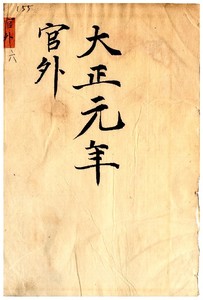 155
大正元年
官外
官外
六